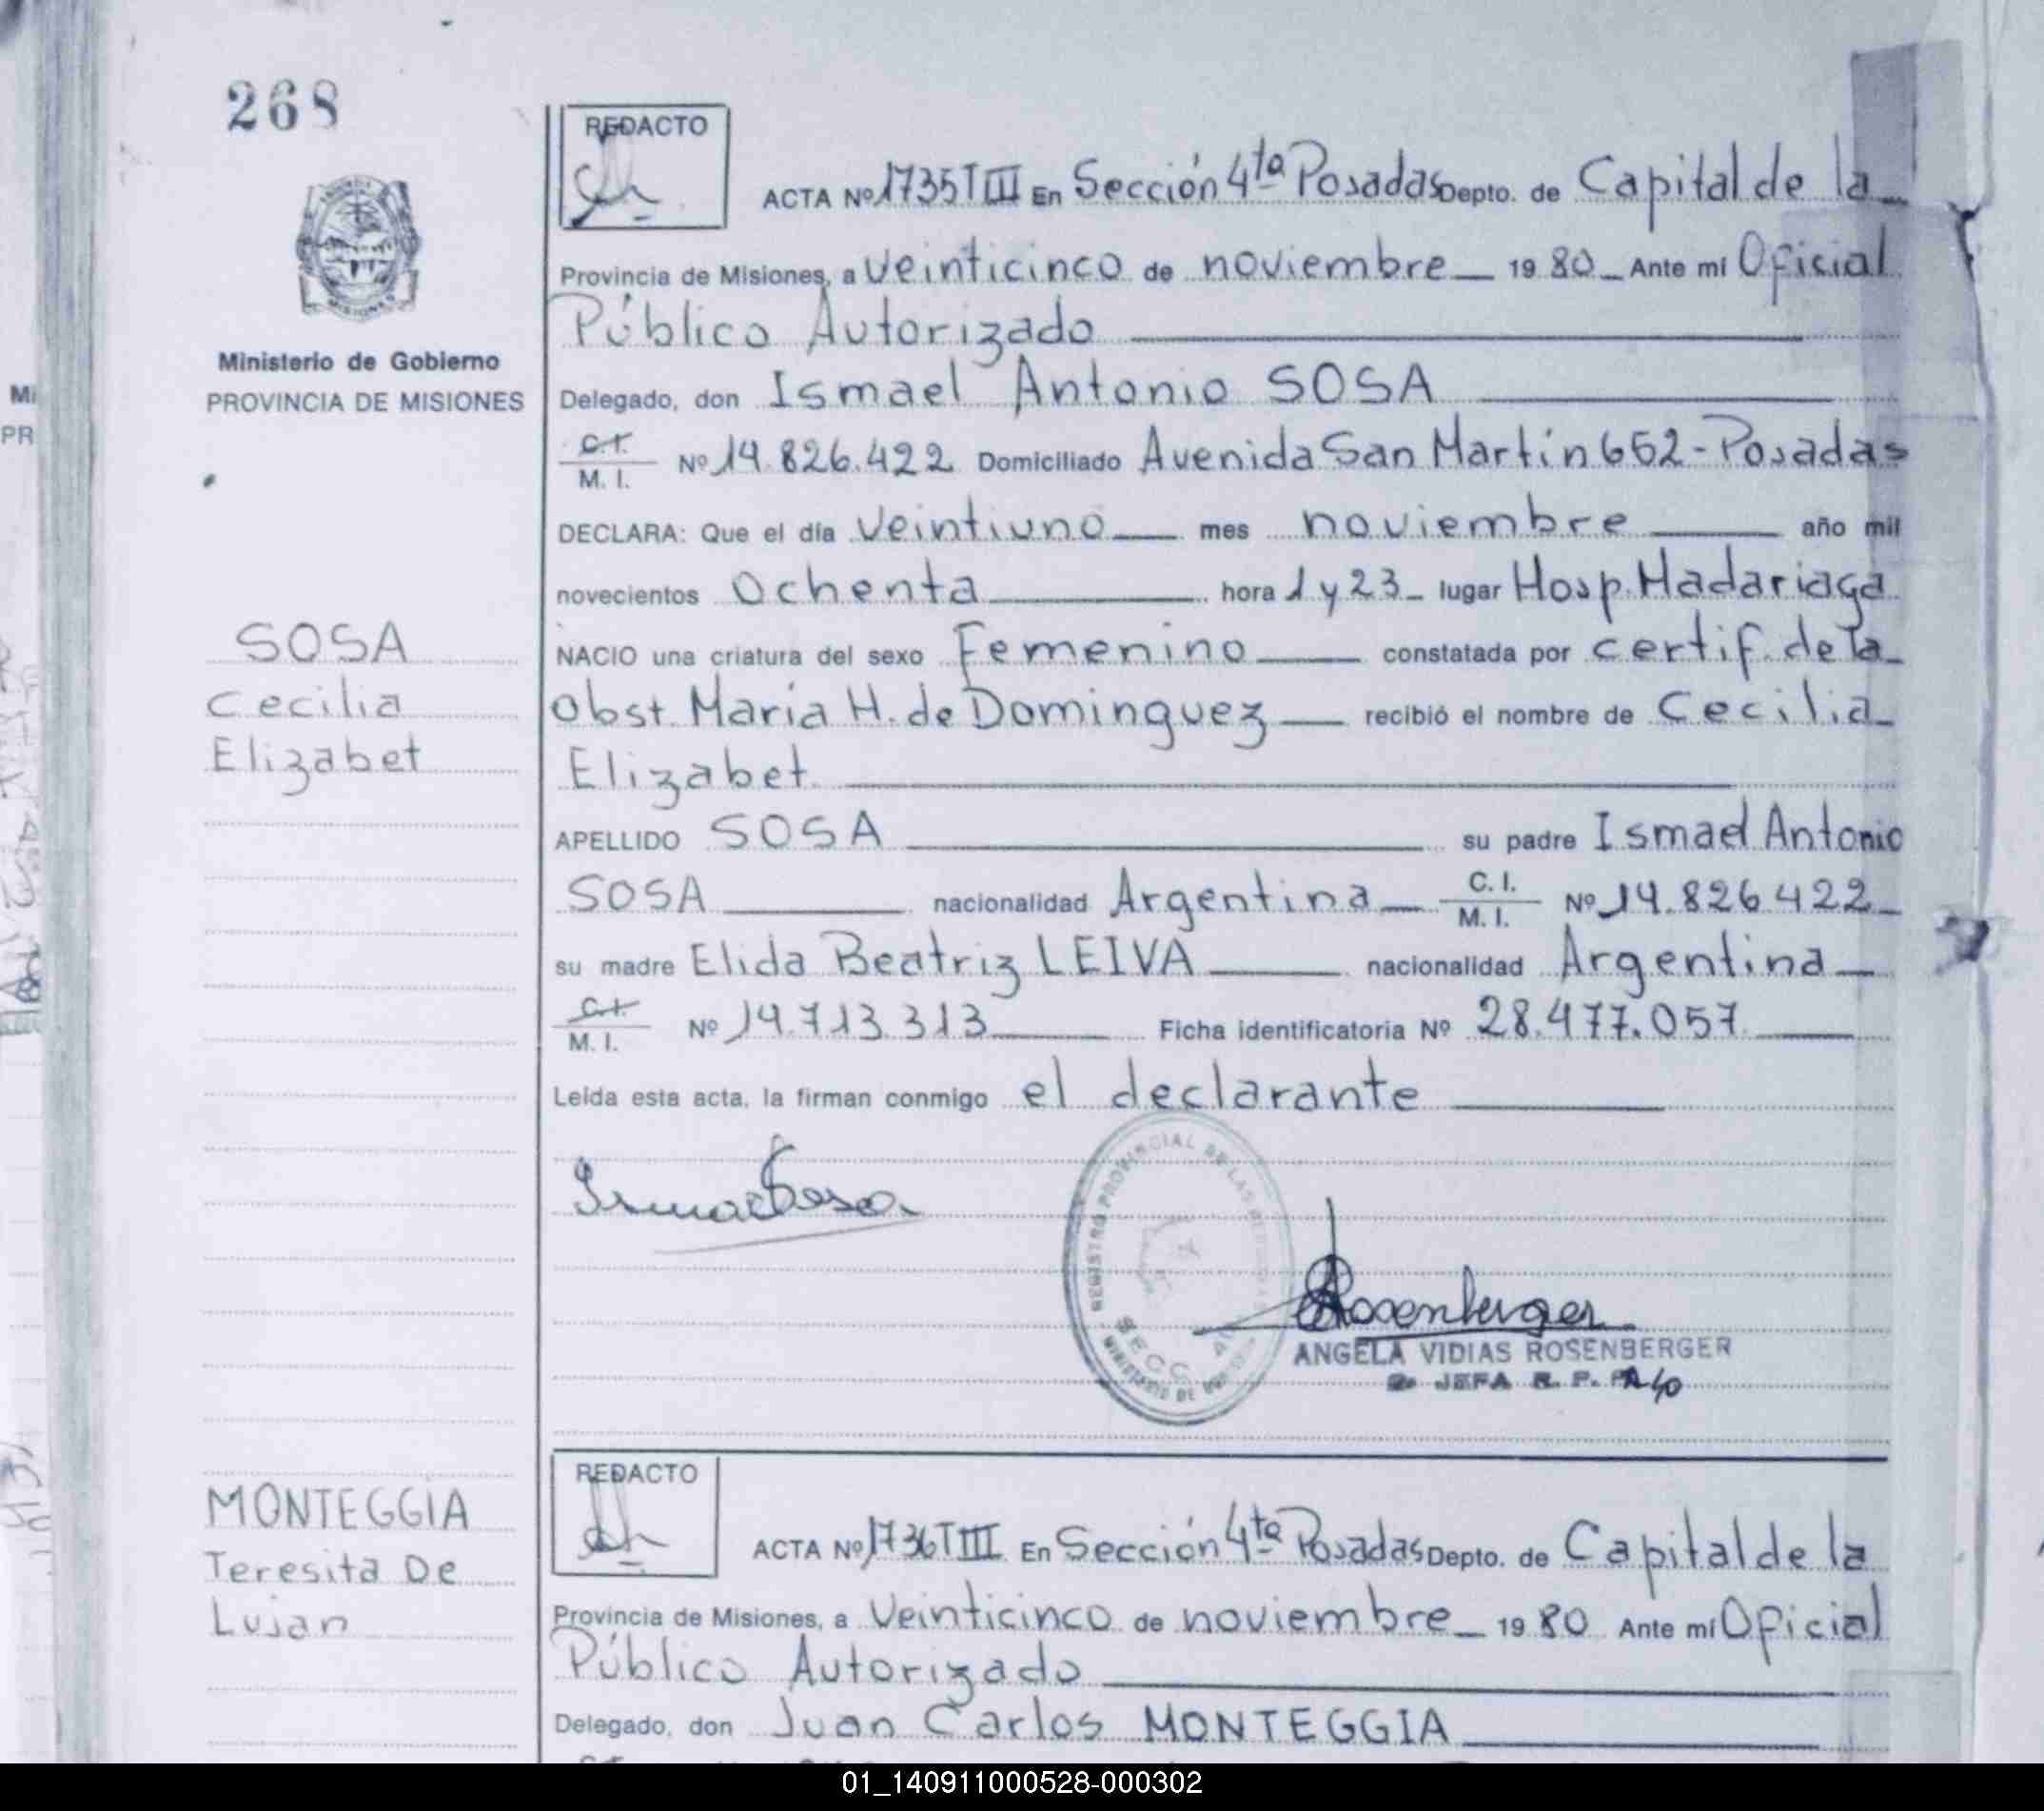 268
REDACTO
ACTA Nº 1735 T III En Sección 4ta Posadas Depto. de Capital de la
Provincia de Misiones, a veinticinco de noviembre 1980 Ante mí Oficial
Público Autorizado
Ministerio de Gobierno
PROVINCIA DE MISIONES
Delegado, don Ismael Antonio SOSA
C.I.
M. I. Nº 14.826.422 Domiciliado Avenida San Martín 652-Posadas
DECLARA: Que el día veintiuno mes noviembre año mil
novecientos Ochenta hora 1 y 23 lugar Hosp. Madariaga
SOSA
Cecilia
Elizabet
NACIO una criatura del sexo Femenino constatada por certif. de la
Obst. María H. de Dominguez recibió el nombre de Cecilia
Elizabet
APELLIDO SOSA su padre Ismael Antonio
SOSA nacionalidad Argentina C. I.
M. I. Nº 14.826.422
su madre Elida Beatriz LEIVA nacionalidad Argentina
C.I.
M. I. Nº 14.713.313 Ficha identificatoria Nº 28.477.057
Leída esta acta, la firman conmigo el declarante
REGISTRO PROVINCIAL DE LAS
SECC. 4
MINISTERIO DE
Rosenberger
ANGELA VIDIAS ROSENBERGER
JEFA R. P.
MONTEGGIA
Teresita De
Lujan
REDACTO
ACTA Nº 1736 T III En Sección 4ta Posadas Depto. de Capital de la
Provincia de Misiones, a veinticinco de noviembre 1980 Ante mí Oficial
Público Autorizado
Delegado, don Juan Carlos MONTEGGIA
01_140911000528-000302